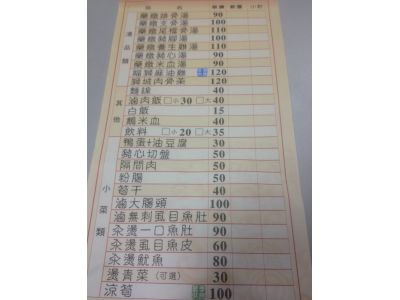 品名 單價 數量 小計
湯品類
藥燉排骨湯 90
藥燉支骨湯 100
藥燉尾椎骨湯 110
藥燉豬腳湯 100
藥燉養生雞湯 110
藥燉豬心湯 90
藥燉米血湯 90
麻油雞 120
骨菜 120
其他
麵線 40
滷肉飯 □小30 □大40
白飯 15
鴨米血 40
飲料 □小20 □大35
小菜類
鴨蛋+油豆腐 30
豬心切盤 50
隔間肉 50
粉腸 50
筍干 40
滷大腸頭 100
滷無刺虱目魚肚 90
汆燙一口魚肚 90
汆燙虱目魚皮 60
汆燙魷魚 80
燙青菜(可選) 30
涼筍 100